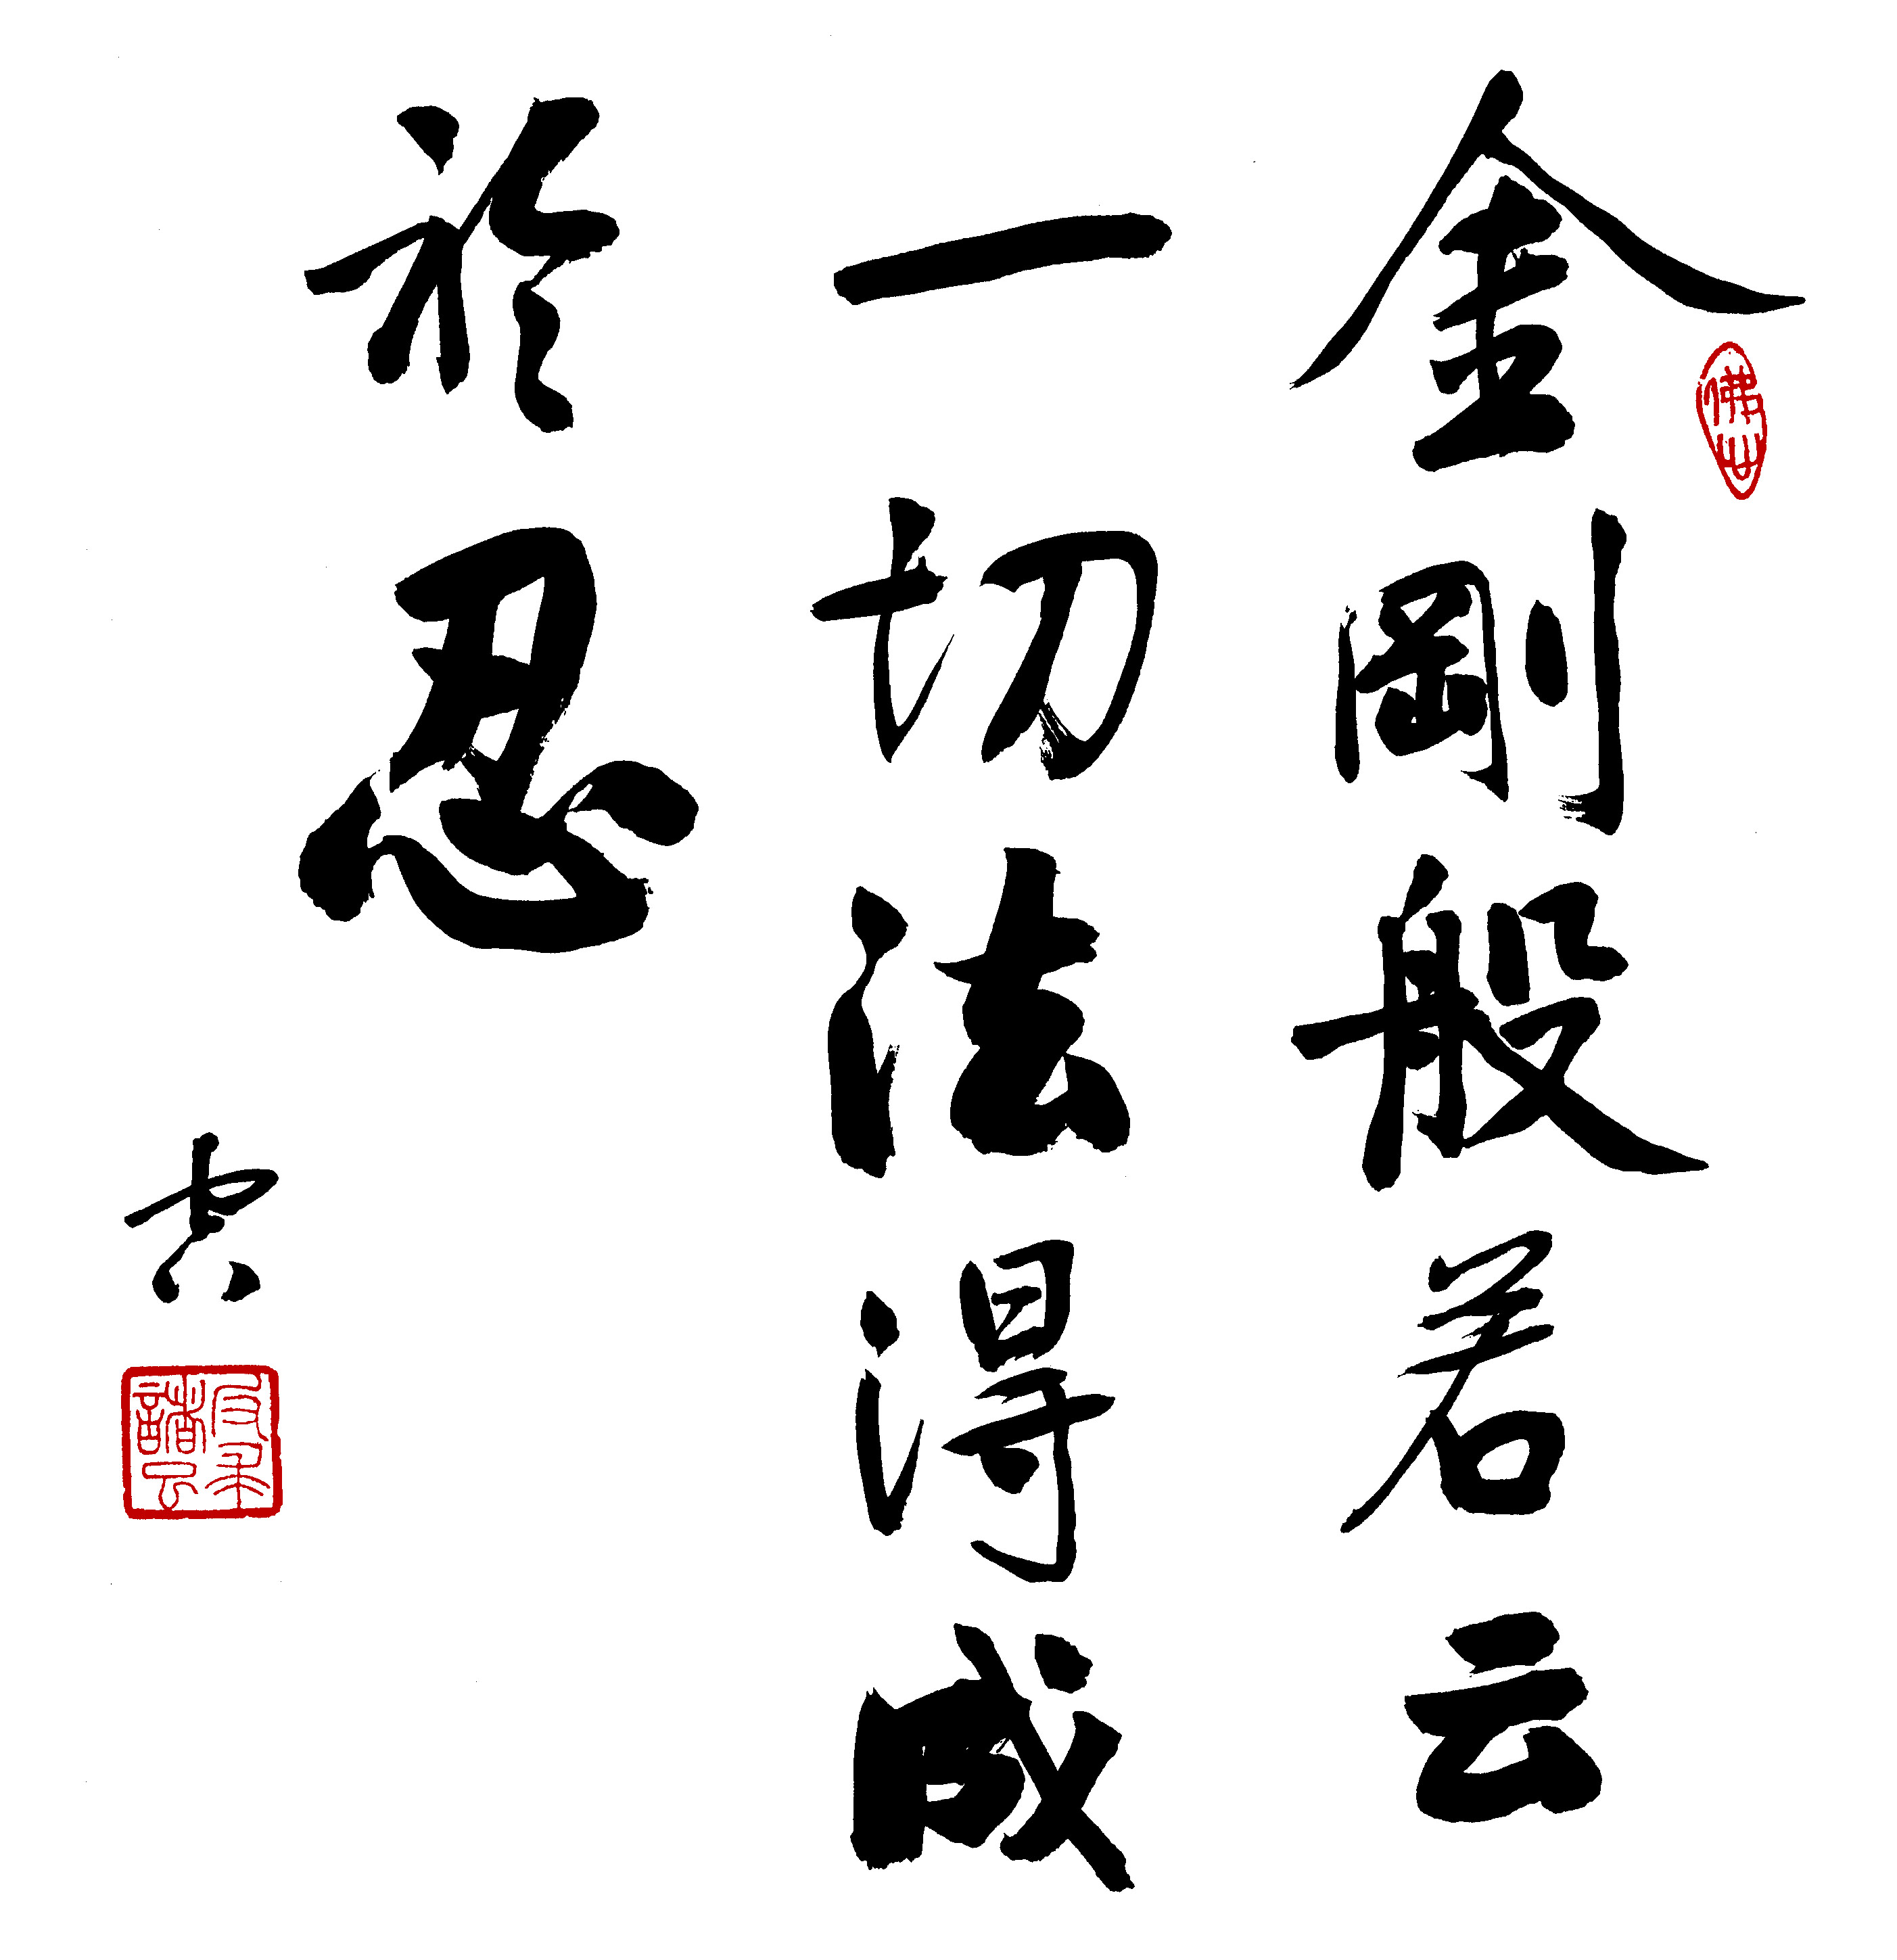 金剛般若云
一切法得成
於忍
佛山